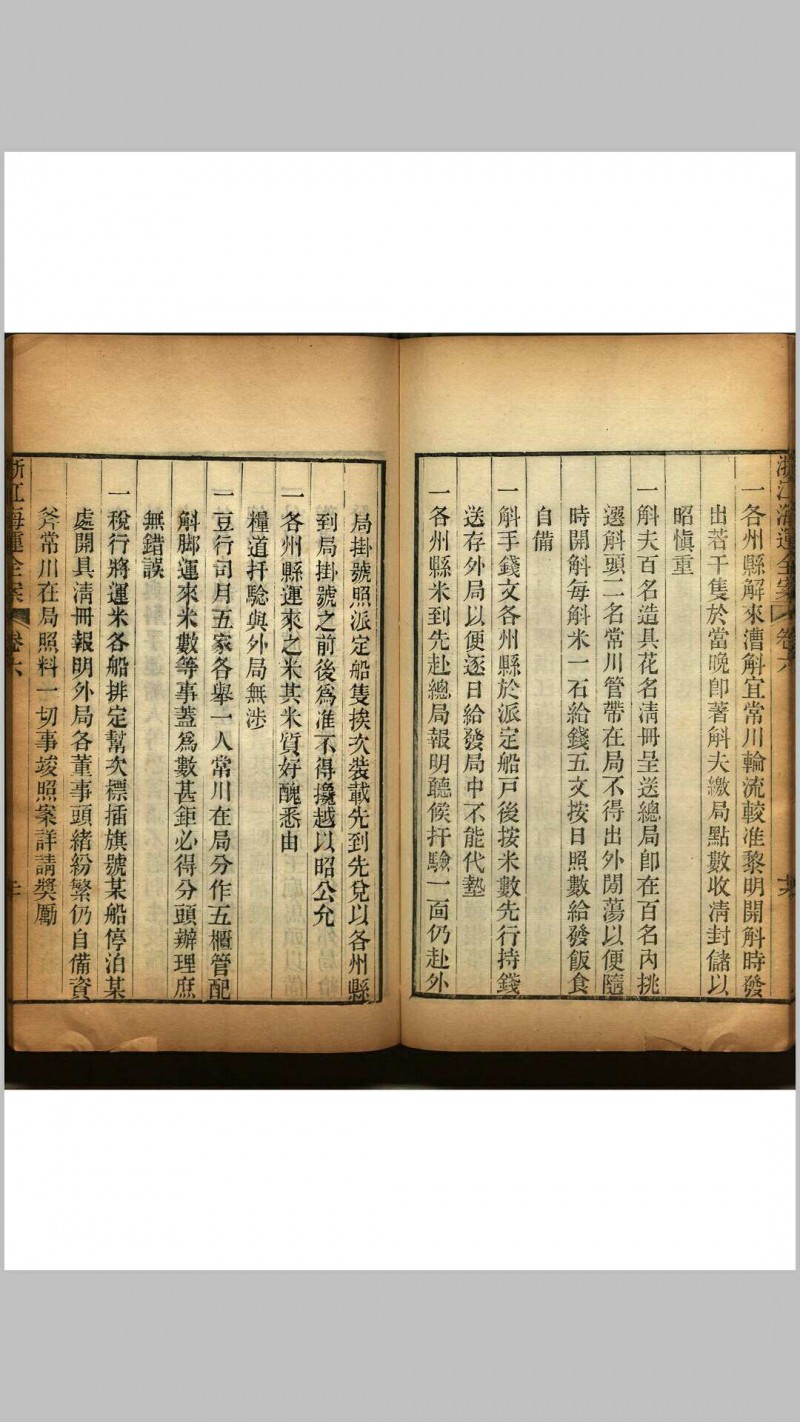 浙江海運全案 卷六
一各州縣解來漕斛宜常川輪流較准黎明開斛時發
出若干隻於當晚卽著斛夫繳局點數收淸封儲以
昭愼重
一斛夫百名造具花名淸冊呈送總局卽在百名內挑
選斛頭二名常川管帶在局不得出外閒蕩以便隨
時開斛每斛米一石給錢五文按日照數給發飯食
自備
一斛手錢文各州縣於派定船戸後按米數先行持錢
送存外局以便逐日給發局中不能代墊
一各州縣米到先赴總局報明聽候扞驗一面仍赴外
局掛號照派定船隻挨次裝載先到先兌以各州縣
到局掛號之前後爲准不得攙越以昭公允
一各州縣運來之米其米質好醜悉由
糧道扞驗與外局無涉
一豆行司月五家各舉一人常川在局分作五櫃管配
斛脚運來米數等事蓋爲數甚鉅必得分頭辦理庶
無錯誤
一稅行將運米各船排定幫次標插旗號某船停泊某
處開具淸冊報明外局各董事頭緒紛繁仍自備資
斧常川在局照料一切事竣照案詳請獎勵
浙江海運全案 卷六